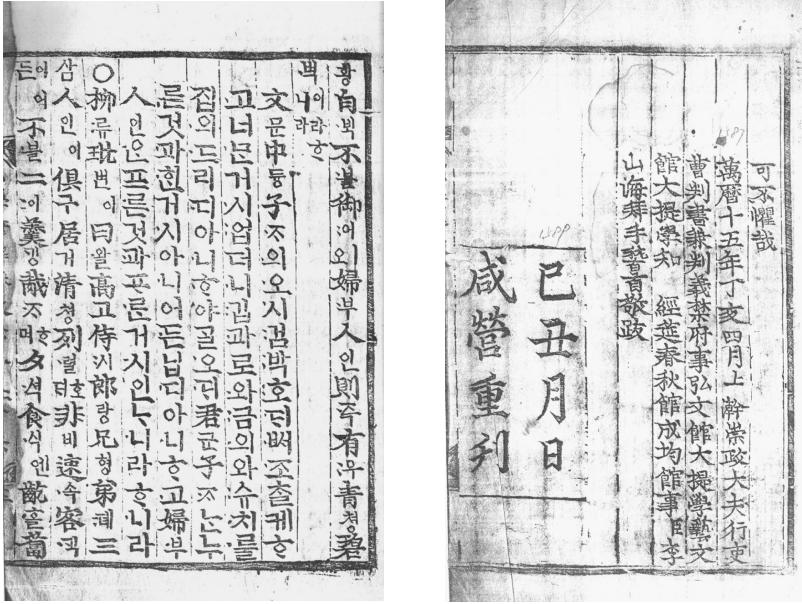 황白ᄇᆡᆨ不블御어ㅣ婦부人인則즉有유青쳥碧
벽이라ᄒᆞ니라
文문中듕子ᄌᆞ의오시검박호ᄃᆡ버조츨케ᄒᆞ
고너믄거시업더니깁과로와금의와슈치를
집의드리디아니ᄒᆞ야ᄀᆞᆯ오ᄃᆡ君군子ᄌᆞᄂᆞᆫ누
른것과흰거시아니어든닙디아니ᄒᆞ고婦부
人인은프른것과프른거시인ᄂᆞ니라ᄒᆞ니라
○柳류玭번이曰왈高고侍시郎랑兄형弟뎨三
삼人인이俱구居거清쳥列렬호ᄃᆡ非비速속客ᄀᆡᆨ
이어든不블二이羹ᄀᆡᆼ胾ᄌᆞᄒᆞ며夕셕食식엔齕흘蔔
可不懼哉
1587
萬曆十五年丁亥四月上澣崇政大夫行吏
曹判書兼判義禁府事弘文館大提學藝文
館大提學知 經筵春秋館成均館事臣李
山海拜手稽首敬跋
1589
己丑月日
咸營重刊